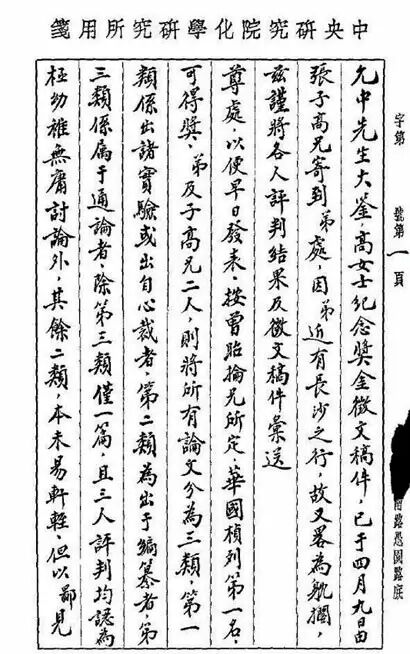 中央研究院化學研究所用箋
字第 號第一頁
路愚園路底
允中先生大鑒,高女士紀念獎金徵文稿件,已于四月九日由
張子高兄寄到弟處,因弟近有長沙之行,故又畧為躭擱,
茲謹將各人評判結果及徵文稿件彙送
尊處,以便早日發表。按曾昭掄兄所定,華國楨列第一名,
可得獎,弟及子高兄二人,則將所有論文分為三類,第一
類係出諸實驗或出自心裁者,第二類為出于編纂者,第
三類係屬于通論者,除第三類僅一篇,且三人評判均認為
極幼稚無庸討論外,其餘二類,本未易軒輊,但以鄙見